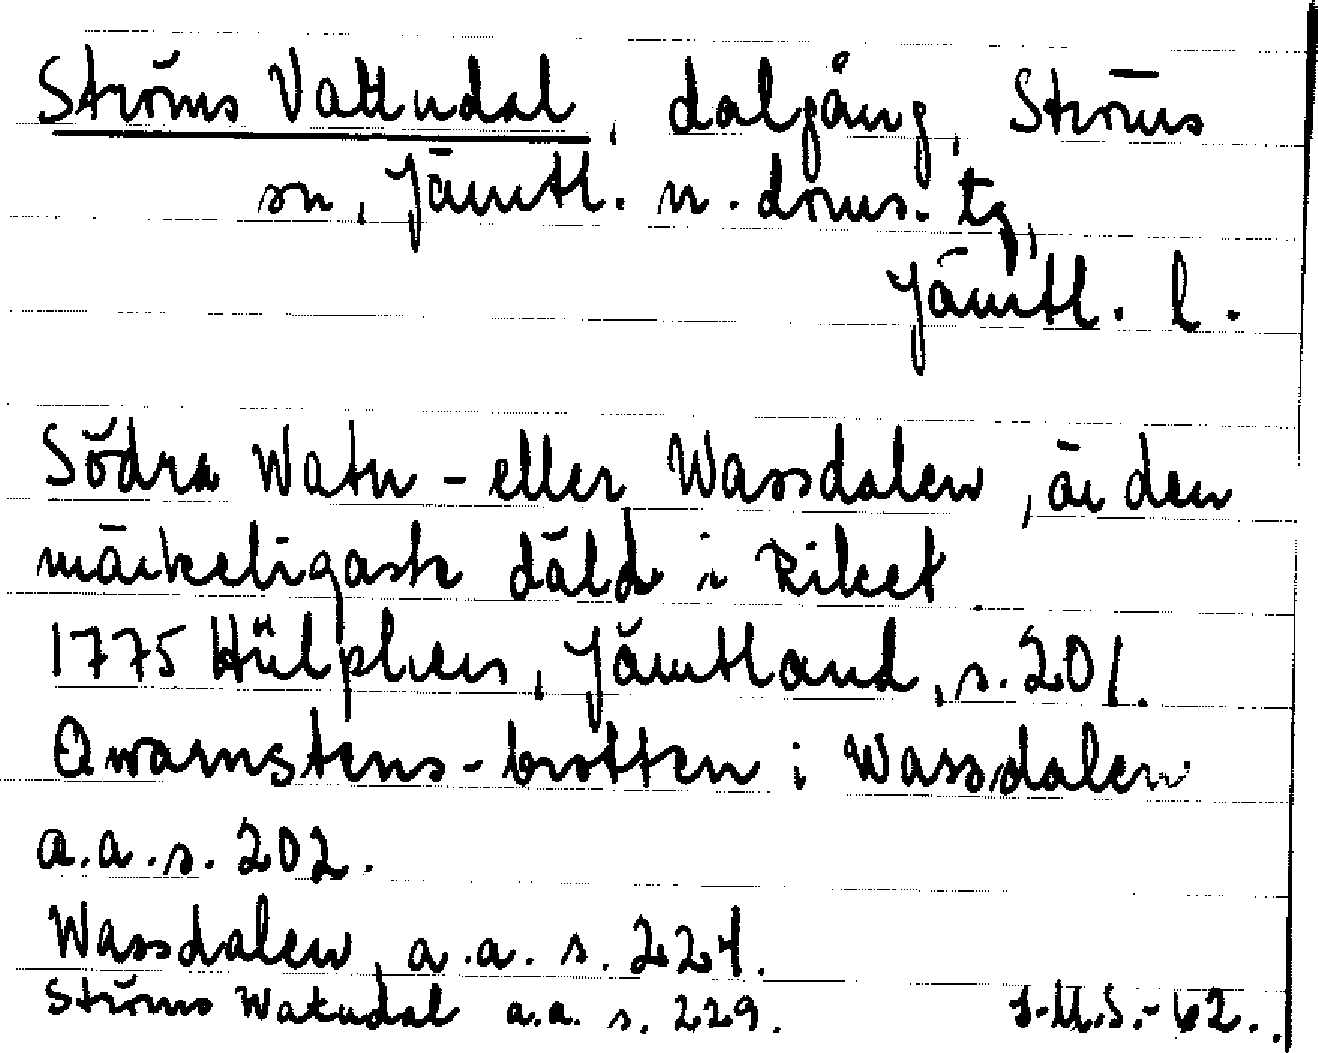 Ströms Vattudal, dalgång, Ströms
sn, Jämtl. n. doms. tg,
Jämtl. l.
Södra Watu - eller Wassdalen, är den
märkeligaste däld i Riket
1775 Hülphers, Jämtland, s. 201.
Qwarnstens-brotten i Wassdalen
a.a. s. 202.
Wassdalen, a.a. s. 224.
Ströms Watudal a.a. s. 229. I.M.S.-62.